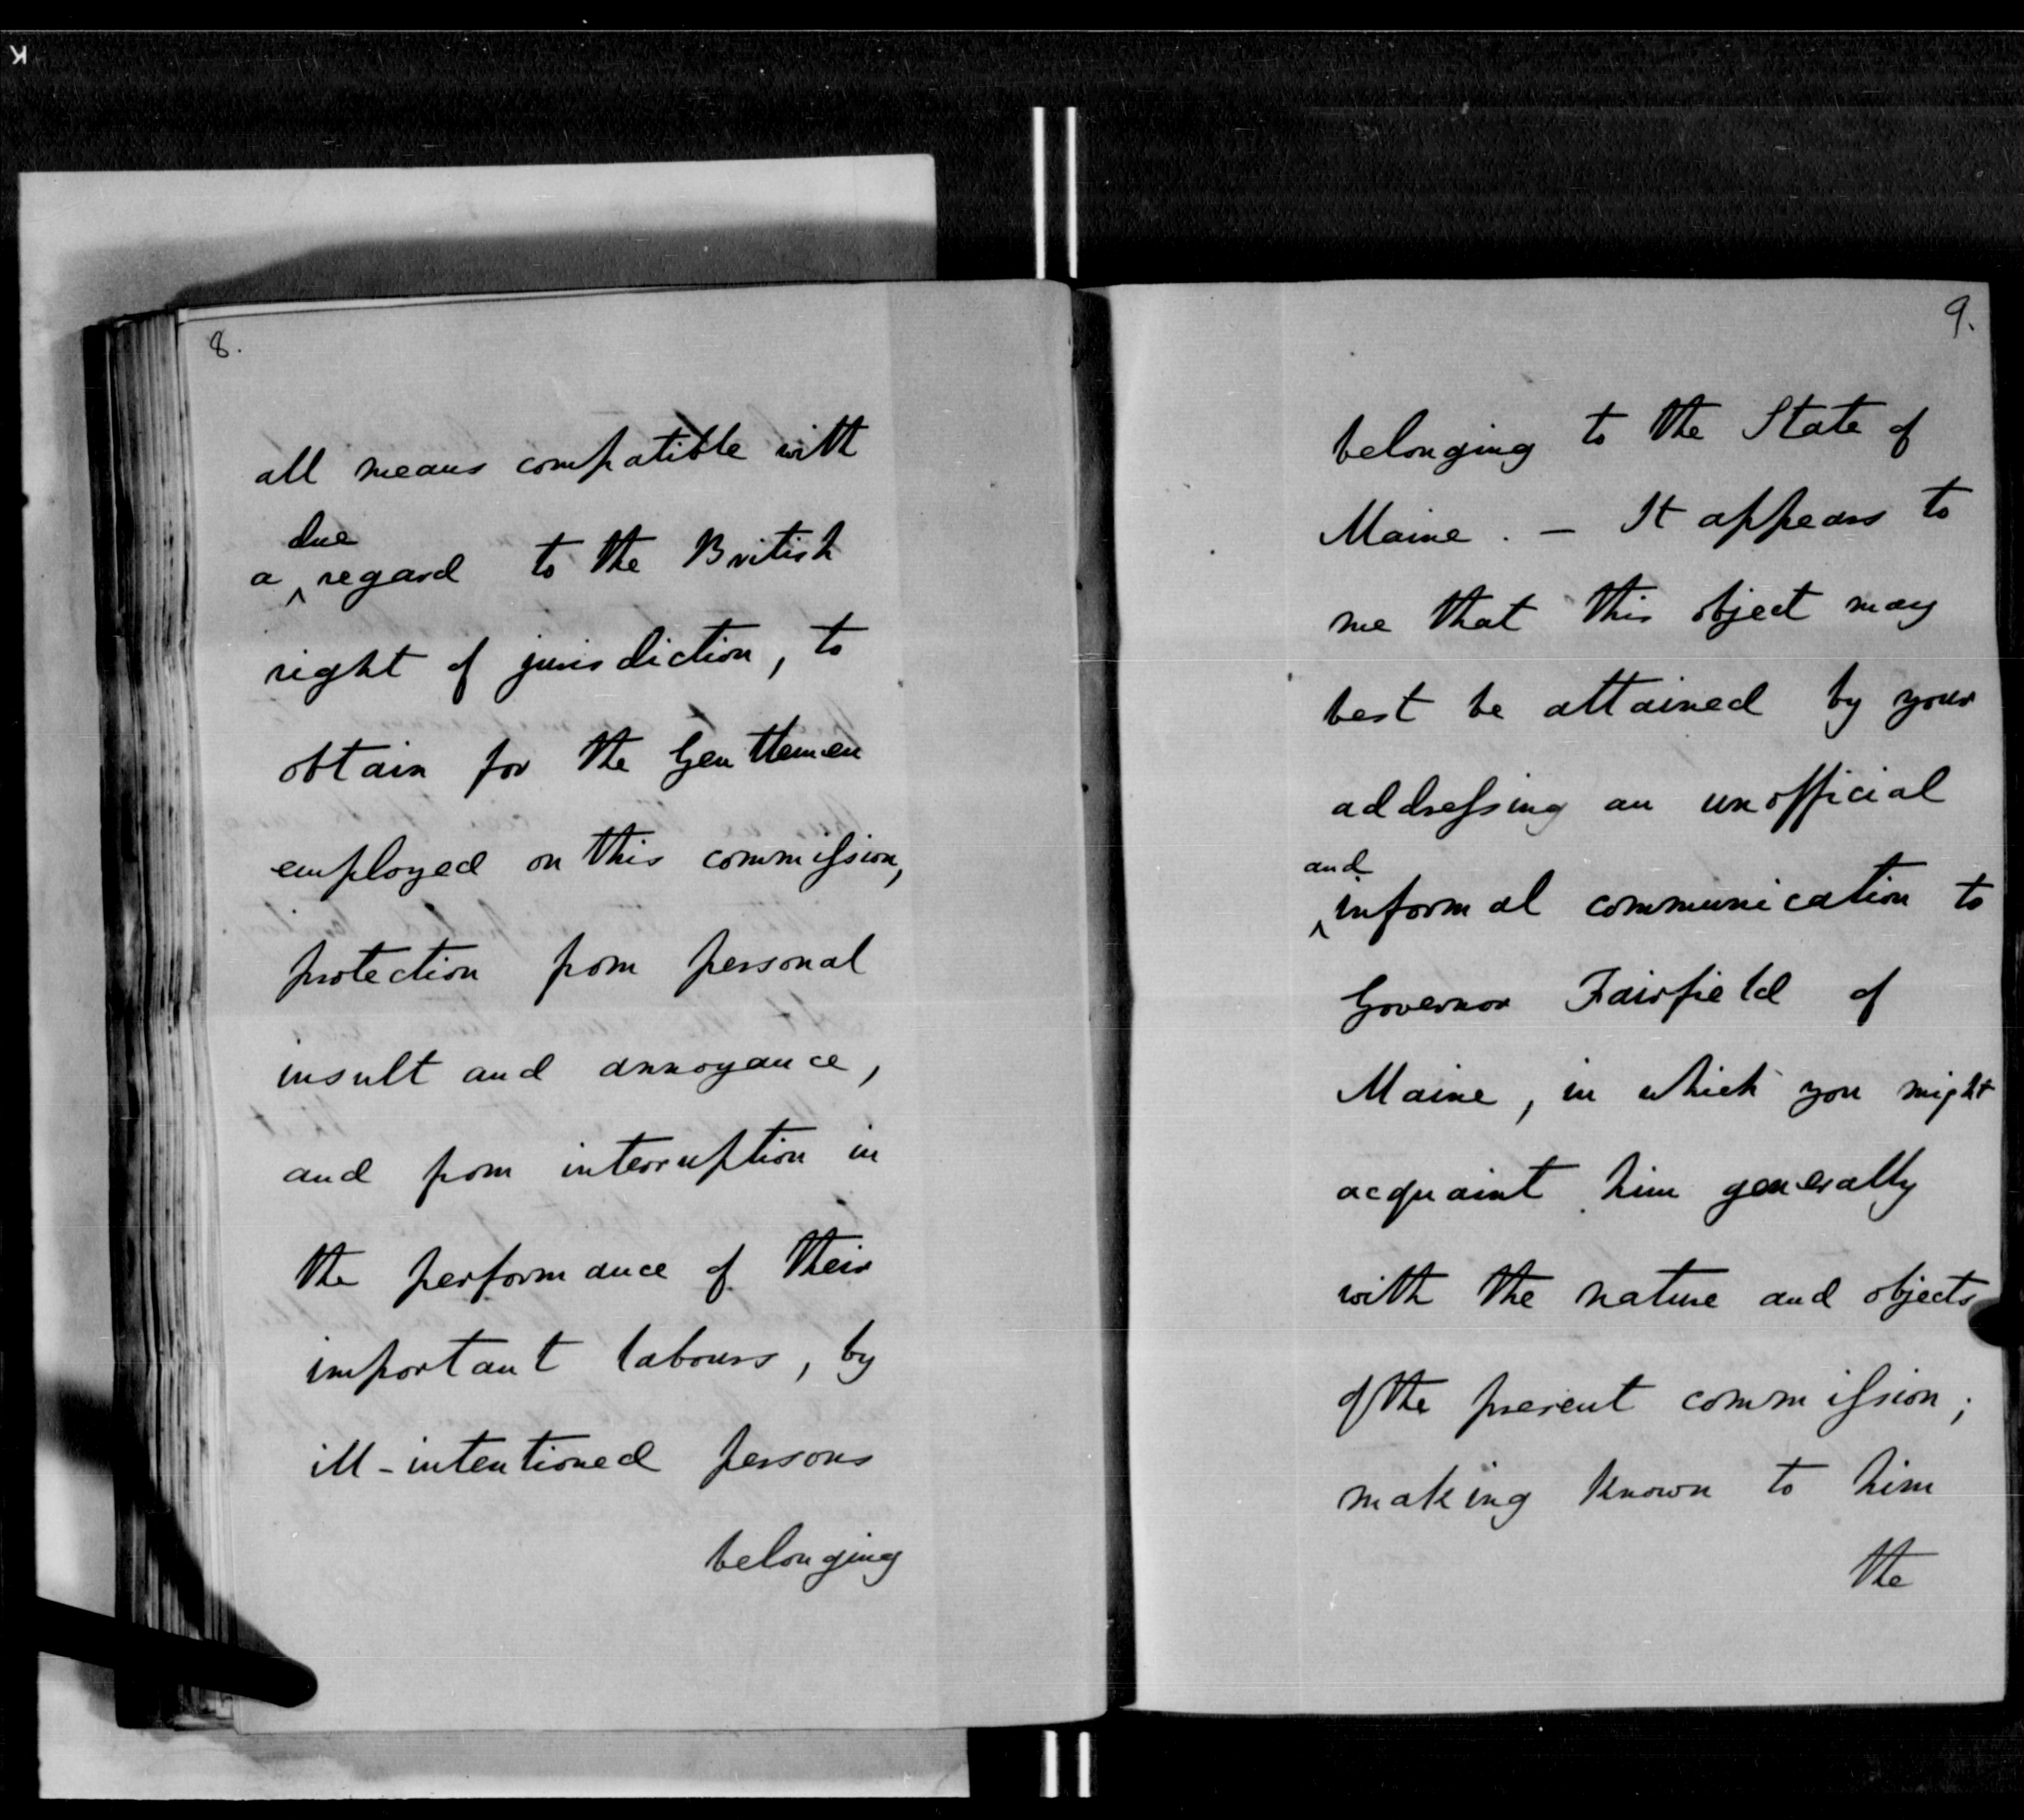 K
8.
all means compatible with
due
a ^ regard to the British
right of jurisdiction, to
obtain for the Gentlemen
employed on this commission,
protection from personal
insult and annoyance,
and from interruption in
the performance of their
important labours, by
ill-intentioned persons
belonging
9.
belonging to the State of
Maine. — It appears to
me that this object may
best be attained by your
addressing an unofficial
and
^ informal communication to
Governor Fairfield of
Maine, in which you might
acquaint him generally
with the nature and objects
of the present commission;
making known to him
the